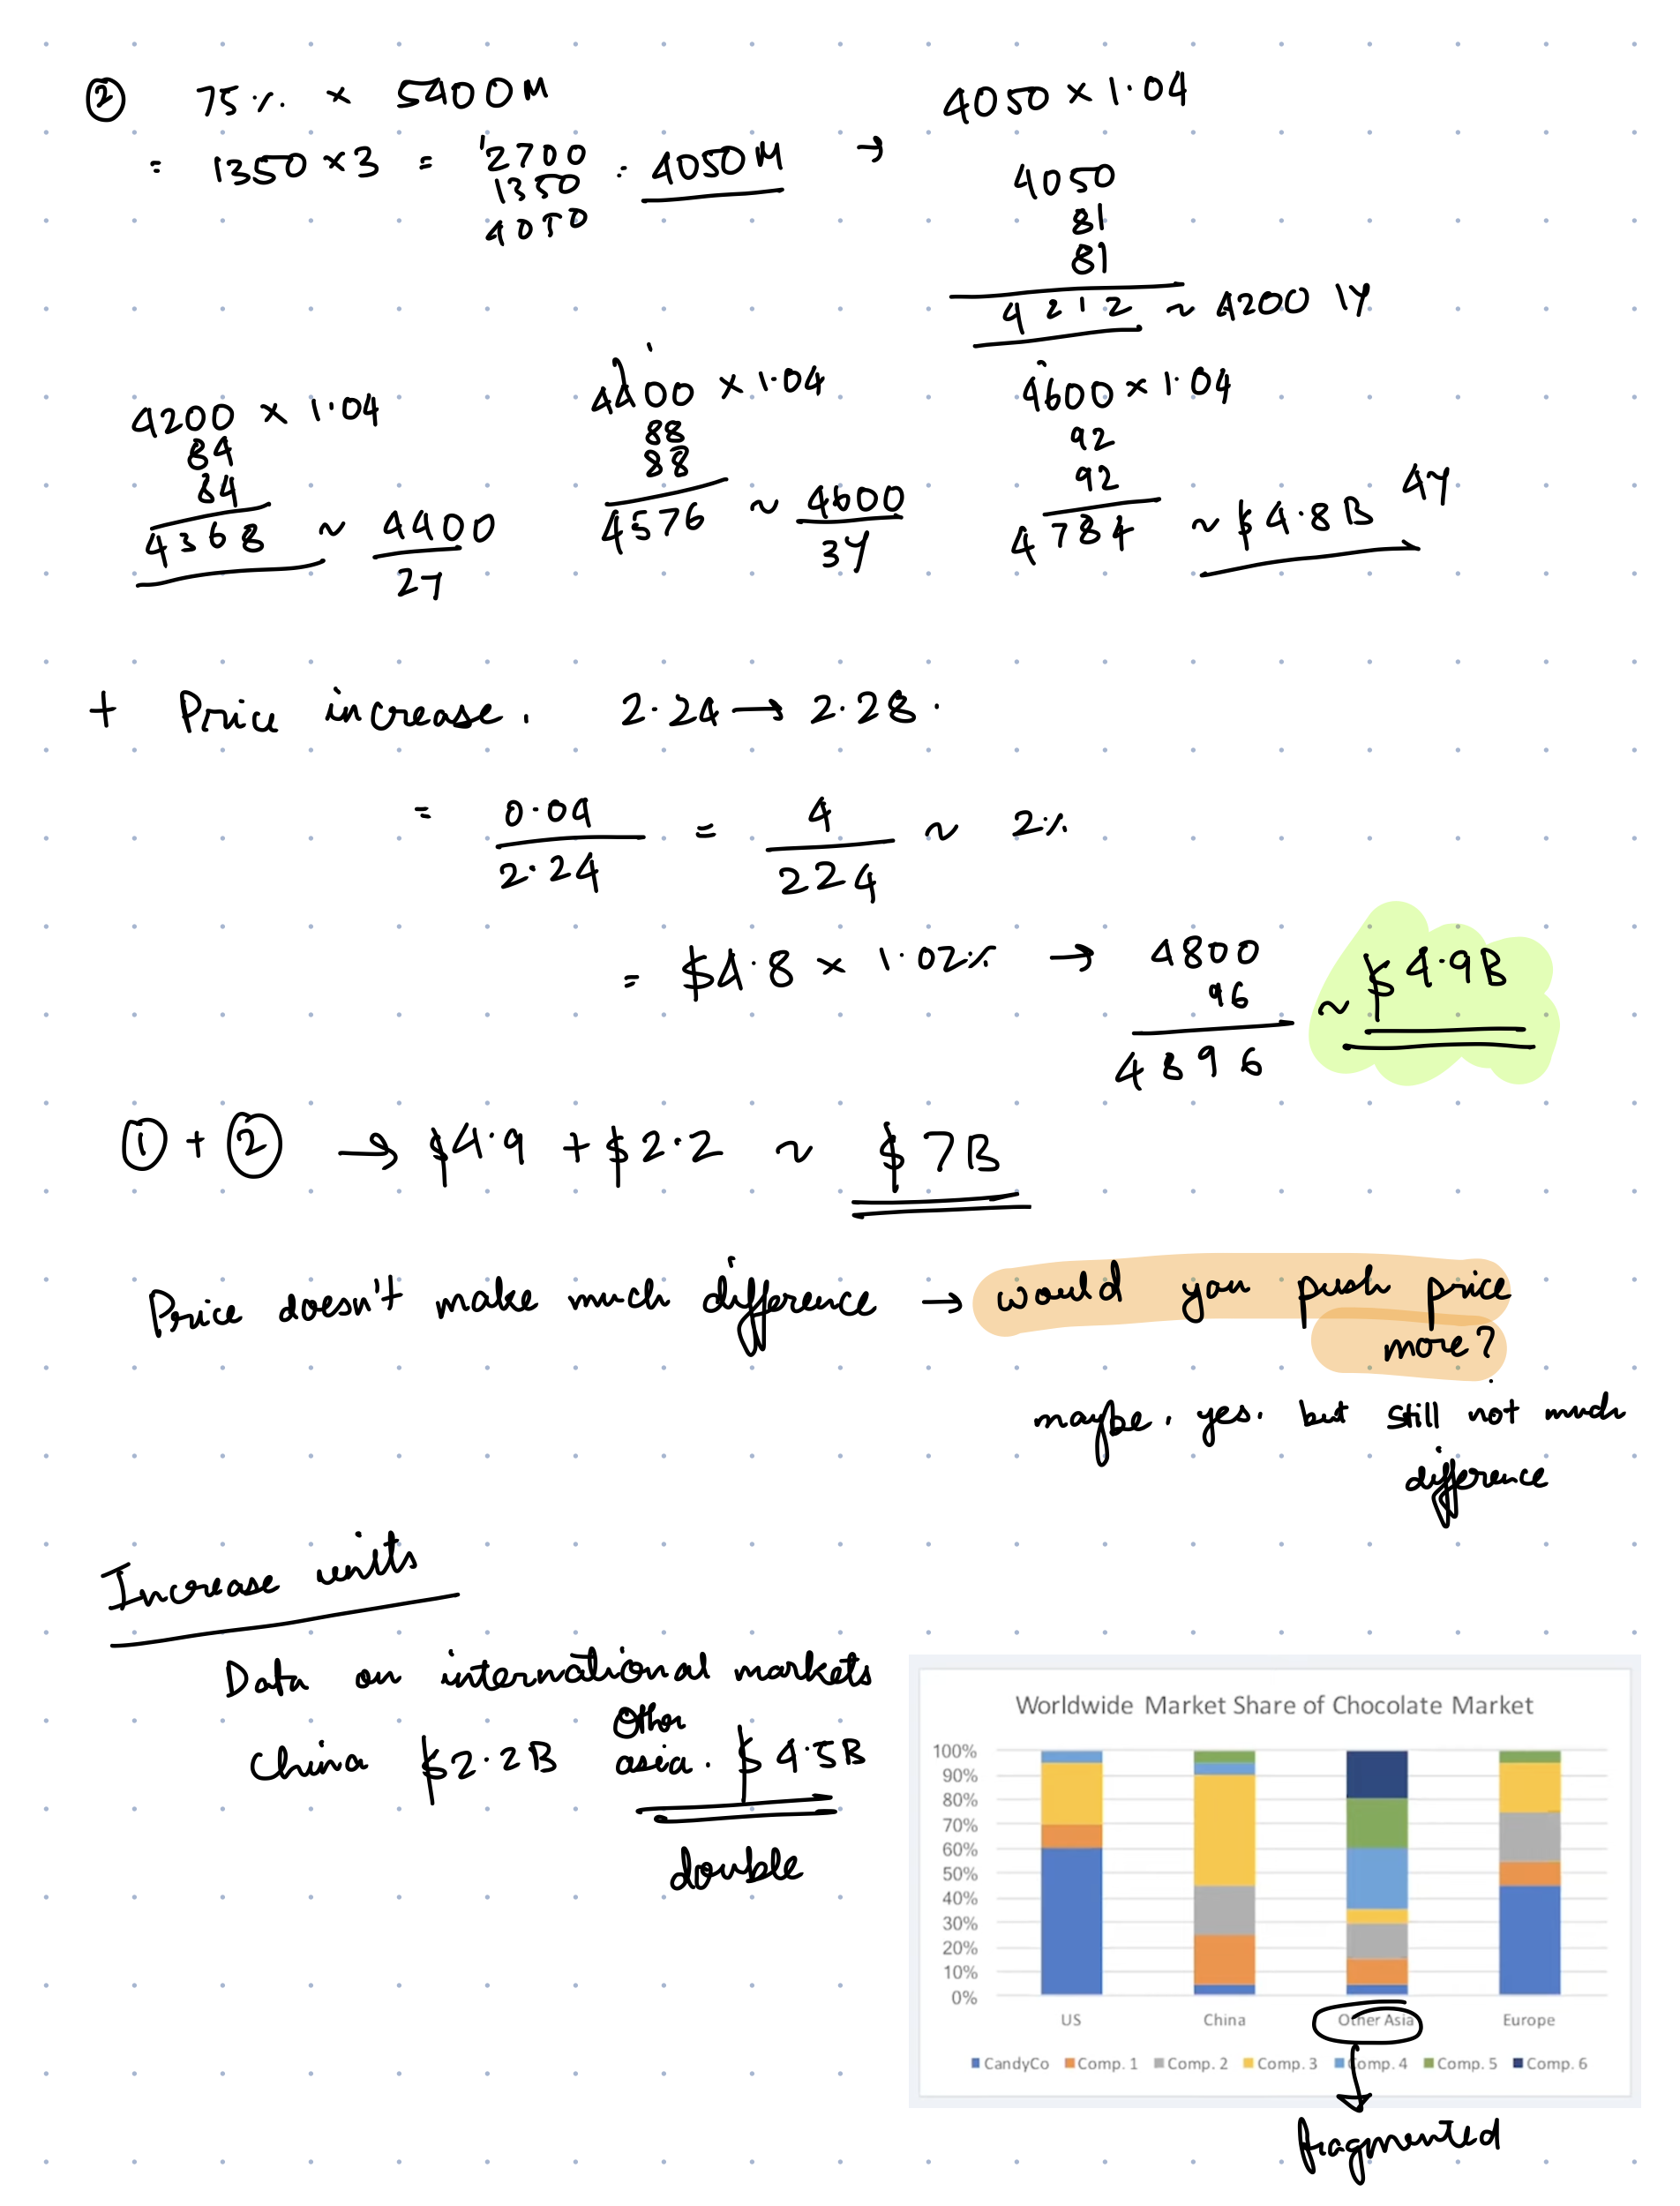 ② 75% × 5400M
= 1350 × 3 = 2700
1350
4050
= 4050M →
4050 × 1.04
4050
81
81
4212 ~ 4200 1Y
4200 × 1.04
84
84
4368 ~ 4400
2Y
4400 × 1.04
88
88
4576 ~ 4600
3Y
4600 × 1.04
92
92
4784 ~ $4.8B 4Y
+ Price increase. 2.24 → 2.28.
= 0.04 / 2.24 = 4 / 224 ~ 2%
= $4.8 × 1.02% → 4800
96
4896
~ $4.9B
① + ② → $4.9 + $2.2 ~ $7B
Price doesn't make much difference → would you push price
more?
maybe. yes. but still not much
difference
Increase units
Data on international markets
China $2.2B Other
asia. $4.5B
double
Worldwide Market Share of Chocolate Market
100%
90%
80%
70%
60%
50%
40%
30%
20%
10%
0%
US China Other Asia Europe
CandyCo Comp. 1 Comp. 2 Comp. 3 Comp. 4 Comp. 5 Comp. 6
fragmented